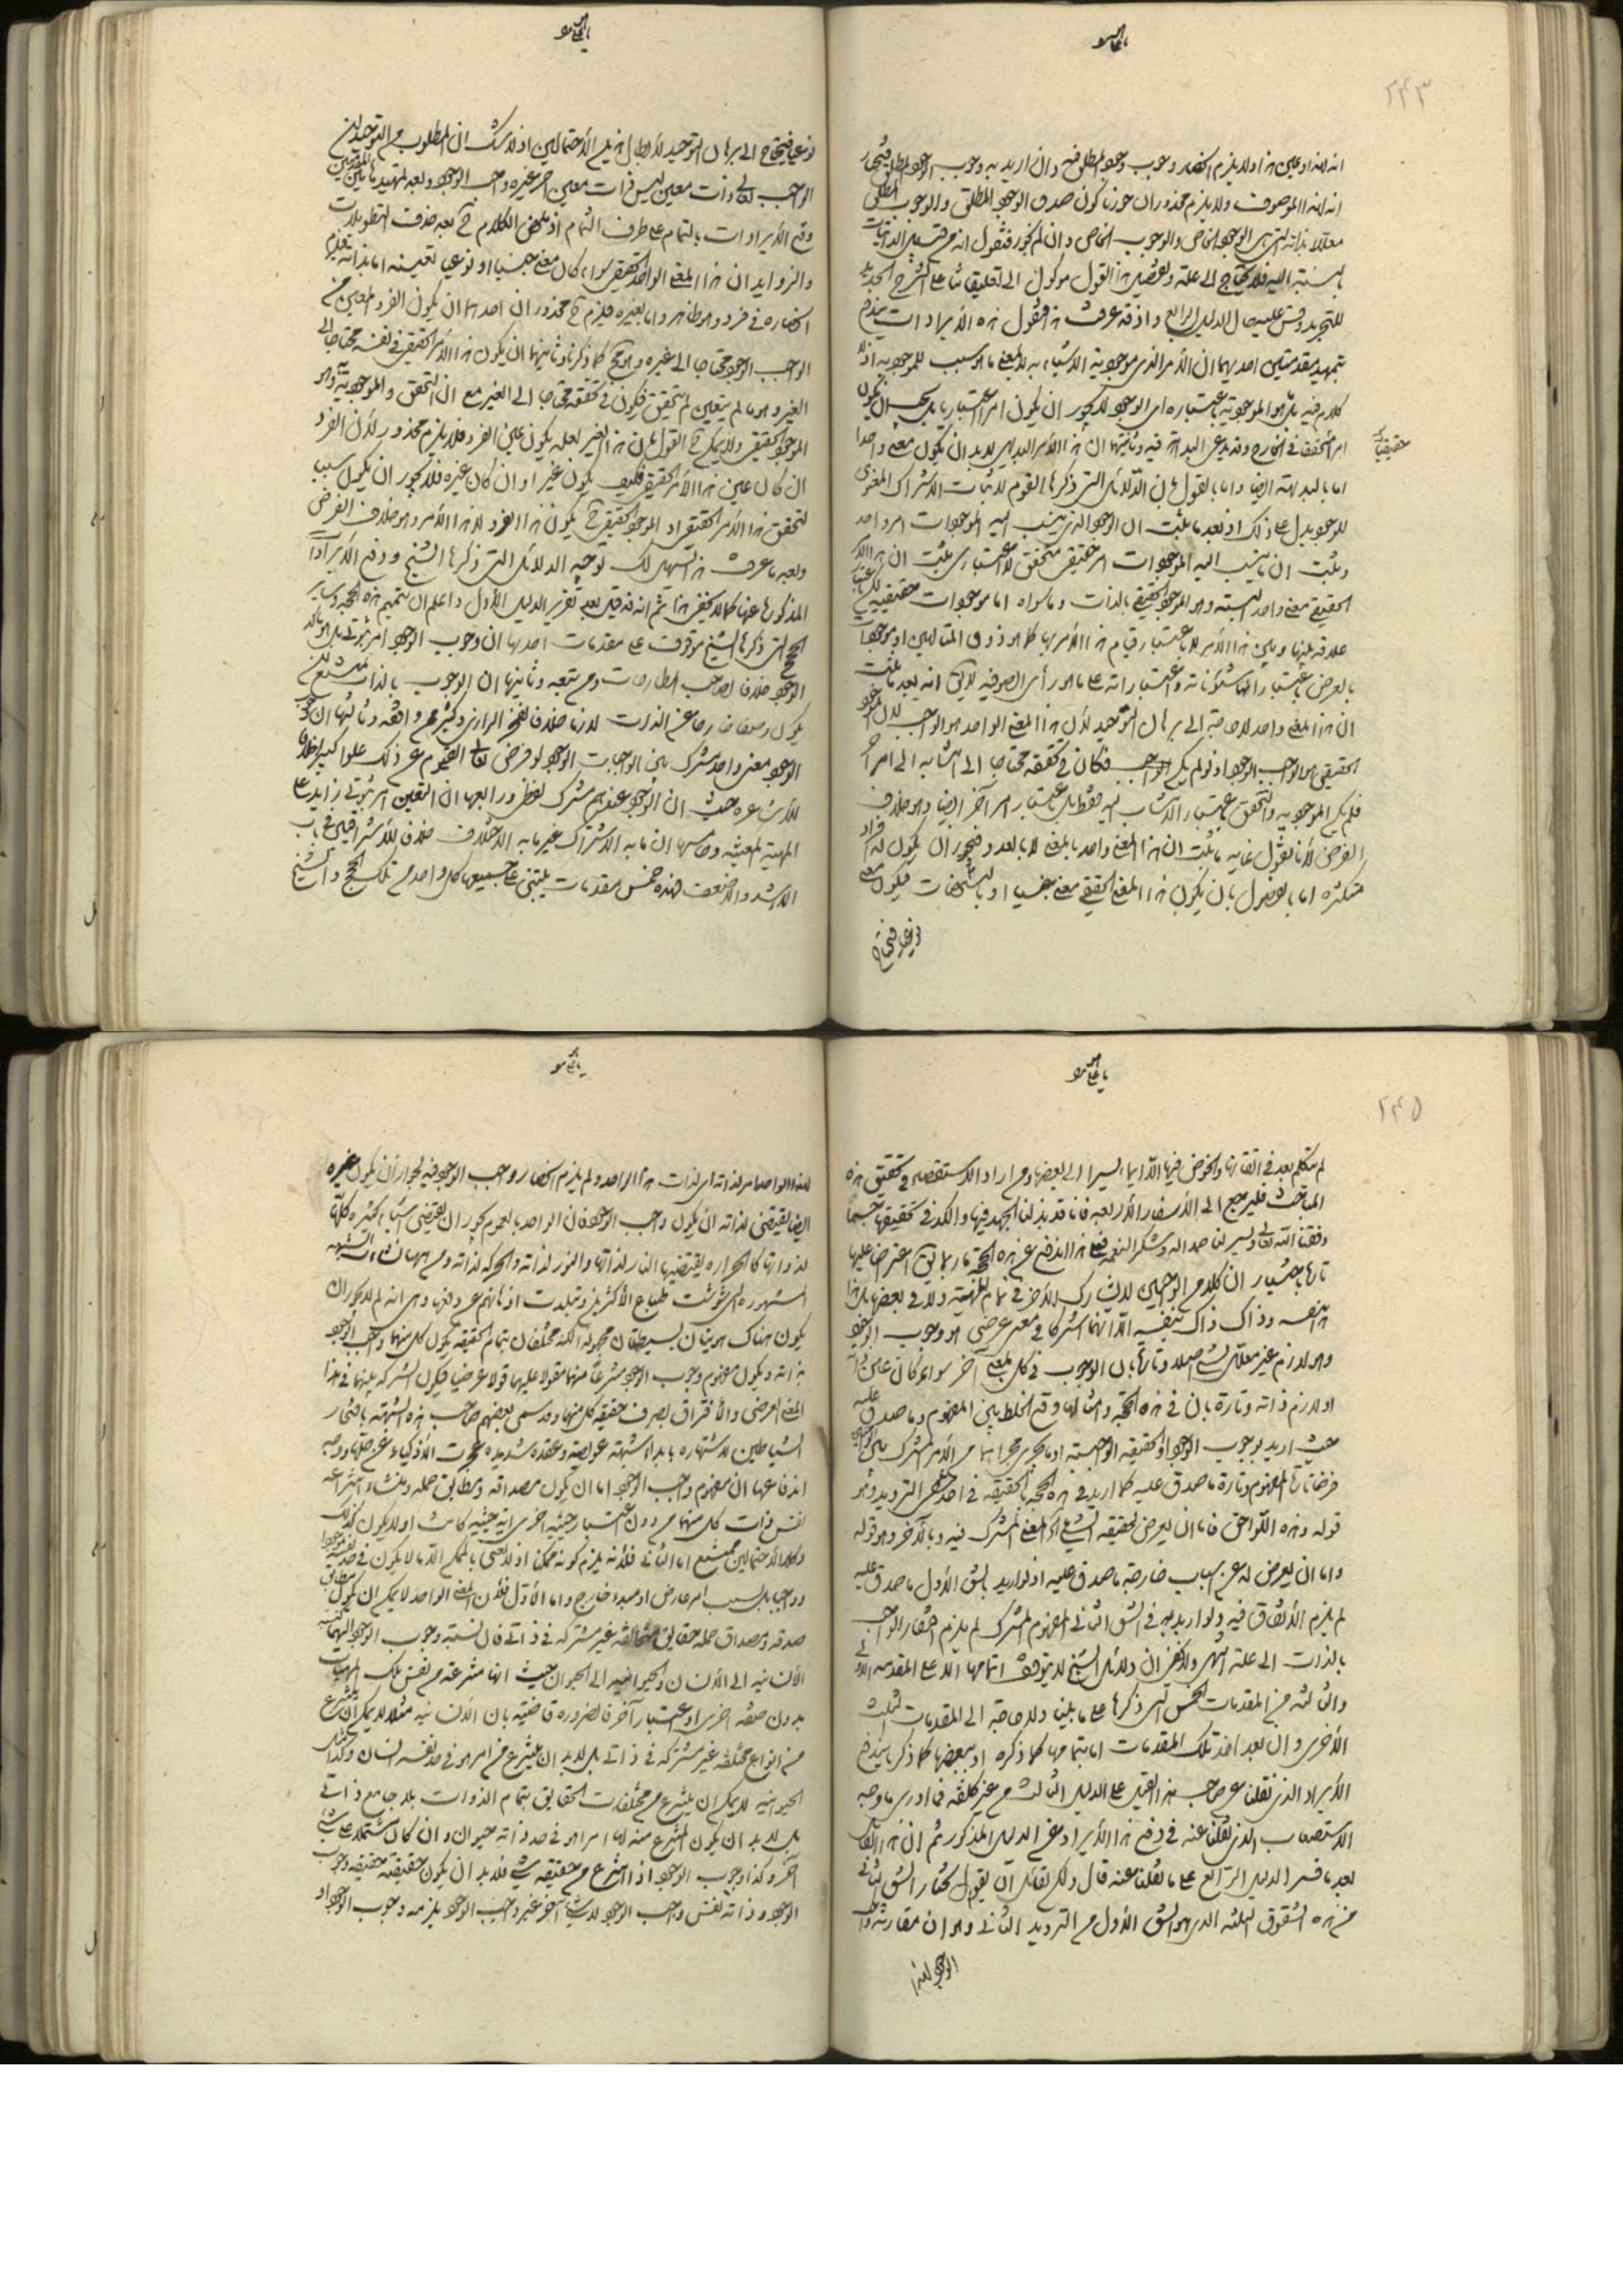 ۲۴۳
انه لهذا وعلى هذا ولا يلزم انحصار وجوب وجود المطلق فيه وان اريد به وجوب الوجود المطلق
انه لهذا الموصوف ولا يلزم محذور ان جوزنا كون صدق الوجود المطلق والوجوب المطلق
معللا بذاته التى هى الوجود الخاص والوجوب الخاص وان لم نجوز فنقول انه من قبيل الذاتيات
بالنسبة اليه فلا يحتاج الى علة وتفصيل هذا القول موكول الى تعليقاتنا على الشرح الجديد
للتجريد وقس عليه حال الدليل الرابع واذ قد عرفت هذا فنقول هذه الايرادات يندفع
بتمهيد مقدمتين احديهما ان الامر الذى موجودية الاشياء به لا بمعنى ما هو سبب للموجودية اذ لا
كلام فيه بل هو الموجودية باعتباره اى الوجود لا يجوز ان يكون امرا اعتباريا بل يجب ان يكون
امرا متحققا فى الخارج وقد يدعى البداهة فيه وثانيتهما ان هذا الامر البديهى لا بد ان يكون معنى واحدا
حقيقيا
اما بالبديهة ايضا واما بالقول بان الدلائل التى ذكرها القوم لاثبات الاشتراك المعنوى
للوجود يدل على ذلك اذ بعد ما يثبت ان الوجود الذى ينسب اليه الموجودات امر واحد
ويثبت ان ما ينسب اليه الموجودات امر حقيقى متحقق لا اعتبارى يثبت ان هذا الامر
الحقيقى معنى واحد البتة وهو الموجود الحقيقى بالذات وما سواه اما موجودات حقيقية لكن باعتبار
علاقة بينها وبين هذا الامر لا باعتبار قيام هذا الامر بها كما هو ذوق المتألهين او موجودات
بالعرض باعتبار انها شئوناته واعتباراته على ما هو رأى الصوفية لا يقال انه بعد ما ثبت
ان هذا المعنى واحد لا حاجة الى برهان التوحيد لان هذا المعنى الواحد هو الواجب لان الموجود
الحقيقى هو الواجب الوجود اذ لو لم يكن الواجب فكان فى تحققه محتاجا الى انتسابه الى امر آخر
فلم يكن الموجودية والتحقق باعتبار الانتساب اليه فقط بل باعتبار امر آخر ايضا وهو خلاف
الفرض لانا نقول غاية ما يثبت ان هذا المعنى واحد بالمعنى لا بالعدد فيجوز ان يكون له افراد
متكثرة اما بالفصول بان يكون هذا المعنى الحقيقى معنى جنسيا او بالتشخصات فيكون معنى
نوعيا فيحتاج
نوعيا فيحتاج الى برهان التوحيد لابطال هذين الاحتمالين اذ لا شك ان المطلوب من التوحيد ان
الواجب تعالى ذات معين ليس ذات معين آخر غيره واجب الوجود وبعد تمهيد هاتين المقدمتين
وقع الايرادات بالتمام على طرف الثمام اذ ملخص الكلام ح بعد حذف التطويلات
والزوايد ان هذا المعنى الواحد الحقيقى سواء كان معنى جنسيا او نوعيا تعينه اما بذاته فيلزم
انحصاره فى فرد وهو ظاهر واما بغيره فيلزم ح محذوران احدهما ان يكون الفرد المعين من
الواجب الوجود محتاجا الى غيره وهو مح كما ذكرنا وثانيهما ان يكون هذا الامر الحقيقى فى نفسه محتاجا الى
الغير وهو ما لم يتعين لم يتحقق فيكون فى تحققه محتاجا الى الغير مع ان التحقق والموجودية وهو
الموجود الحقيقى ولا يمكن ح القول بان هذا الغير لعله يكون عين الفرد فلا يلزم محذور لان الفرد
ان كان عين هذا الامر الحقيقى فكيف يكون غيرا وان كان غيره فلا يجوز ان يكون سبب
لتحقق هذا الامر الحقيقى اذ الموجود الحقيقى ح يكون هذا الفرد لا هذا الامر وهو خلاف الفرض
وبعد ما عرفت هذا يسهل لك توجيه الدلائل التى ذكرها الشيخ ودفع الايرادات
المذكورة عنها كما لا يخفى هذا ثم انه قد قيل بعد تقرير الدليل الاول واعلم ان تتميم هذه الحجة وساير
الحجج التى ذكرها الشيخ موقوف على مقدمات احدها ان وجوب الوجود امر ثبوتى بل هو تأكد
الوجود خلافا لصاحب المطارحات ومن تبعه وثانيها ان الوجوب بالذات يمتنع ان
يكون وصفا خارجا عن الذات لازما خلافا لفخر الرازى وكثير ممن وافقه وثالثها ان الوجوب
الوجود معنى واحد مشترك بين الواجبات الوجود لو فرض تعالى القيوم عن ذلك علوا كبيرا خلافا
للاشاعرة حيث ان الوجود عندهم مشترك لفظى ورابعها ان التعين امر ثبوتى زايد على
المهية المتعينة وخامسها ان ما به الاشتراك غير ما به الاختلاف خلافا للاشراقيين فى باب
الاشد والاضعف فهذه خمس مقدمات يبتنى على جميعها كل واحد من تلك الحجج والشيخ
۲۴۵
لم يتكلم بعد فى اتقانها والخوض فيها الا ايماء يسيرا الى بعضها ومن اراد الاستقصاء فى تحقيق هذه
المباحث فليرجع الى الاسفار الاربعة فانا قد بذلنا الجهد فيها والكد فى تحقيقها حسبما
وفقنا الله تعالى ويسر لنا حمدا له وشكرا لنعمه فعلى هذا اندفع عن هذه الحجة ما ربما يق اعتراضا عليها
تارة باعتبار ان كلا من الواجبين لا يشارك الآخر فى تمام المهية ولا فى بعضها بل هذا
بنفسه وذاك ذاك بنفسه الا انهما اشتركا فى معنى عرضى هو وجوب الوجود
وهو لازم غير معلل بشىء اصلا وتارة بان الوجوب فى كل بمعنى آخر سواء كان عين ذاته
او لازم ذاته وتارة بان فى هذه الحجة وامثالها وقع الخلط بين المفهوم وما صدق عليه
حيث اريد بوجوب الوجود او الحقيقة الواجبية او ما يجرى مجراهما من الامر المشترك بين الواجبين
فرضا تارة المفهوم وتارة ما صدق عليه كما اريد فى هذه الحجة بالحقيقة فى احد شقى الترديد وهو
قوله وهذه اللواحق فاما ان يعرض لحقيقة الشىء اى المعنى المشترك فيه وبالآخر وهو قوله
واما ان يعرض له عن اسباب خارجة ما صدق عليه اذ لو اريد بالشق الاول ما صدق عليه
لم يلزم الاتفاق فيه ولو اريد به فى الشق الثانى المفهوم المشترك لم يلزم افتقار الواجب
بالذات الى علة انتهى ولا يخفى ان دلائل الشيخ لا يتوقف اتمامها الا على المقدمة الاولى
والثالثة من المقدمات الخمس التى ذكرها على ما بينا ولا حاجة الى المقدمات الثلث
الاخرى وان بعد اخذ تلك المقدمات اما بتمامها كما ذكره او ببعضها كما ذكرنا يندفع
الايراد الذى نقلنا عن صاحب هذا القيل على الدليل الثالث من غير كلفة فما ادرى ما وجه
الاستصعاب الذى نقلنا عنه فى دفع هذا الايراد عن الدليل المذكور ثم ان هذا القائل
بعد ما فسر الدليل الرابع على ما نقلنا عنه قال ولك لقائل ان يقول نختار الشق الثانى
من هذه الشقوق الثلثة الذى هو الشق الاول من الترديد الثانى وهو ان مقارنة واجب
الوجود لهذا
لهذا الواحد امر لذاته اى لذات هذا الواحد ولم يلزم انحصار واجب الوجود فيه لجواز ان يكون غيره
ايضا يقتضى لذاته ان يكون واجب الوجود فان الواحد بالعموم يجوز ان يقتضى اشياء كثيرة كلها
لذواتها كالحرارة يقتضيها النار لذاتها والنور لذاته والحركة لذاته ومن ههنا نشاء الشبهة
المشهورة التى شوشت طباع الاكثرين وتبلدت اذهانهم عن دفعها وهى انه لم لا يجوز ان
يكون هناك هويتان بسيطتان مجهولة الكنه مختلفتان بتمام الحقيقة يكون كل منهما واجب الوجود
بذاته ويكون مفهوم وجوب الوجود منتزعا منهما مقولا عليهما قولا عرضيا فيكون اشتراكه بينهما فى هذا
المعنى العرضى والافتراق بصرف حقيقة كل منهما وقد سمى بعضهم صاحب هذه الشبهة بافتخار
الشياطين لاشتهاره بابداء شبهة عويصة وعقدة شديدة عجزت الاذكياء عن حلها ووجه
اندفاعها ان مفهوم واجب الوجود اما ان يكون مصداقه ومطابق حمله ومنشاء انتزاعه
نفس ذات كل منهما من دون اعتبار حيثية اخرى اية حيثية كانت او لا يكون كذلك
وكلا الاحتمالين ممتنع اما الثانى فلانه يلزم كونه ممكنا اذ لا نعنى بالممكن الا ما لا يكون فى حد نفسه موجودا
وواجبا بل بسبب امر عارض او مبدء خارج واما الاول فلان المعنى الواحد لا يمكن ان يكون مطابق
صدقه ومصداق حمله حقايق متخالفة غير مشتركة فى ذاتى فان نسبة وجوب الوجود اليهما كنسبة
الانسانية الى الانسان والحيوانية الى الحيوان حيث انها منتزعة من نفس تلك المهيات
بدون صفة اخرى او اعتبار آخر فالضرورة قاضية بان الانسانية مثلا لا يمكن ان ينتزع
من انواع مختلفة غير مشتركة فى ذاتى بل لا بد ان ينتزع من امر هو فى حد نفسه انسان وكذلك
الحيوانية لا يمكن ان ينتزع من مختلفات الحقايق بتمام الذوات بلا جامع ذاتى
بل لا بد ان يكون المنتزع منه لها امرا هو فى حد ذاته حيوان وان كان مشتملا على شىء
آخر وكذا وجوب الوجود اذا انتزع من حقيقة شىء فلا بد ان يكون حقيقته حقيقة وجوب
الوجود وذاته نفس واجب الوجود لا شىء آخر غير واجب الوجود يلزمه وجوب الوجود او